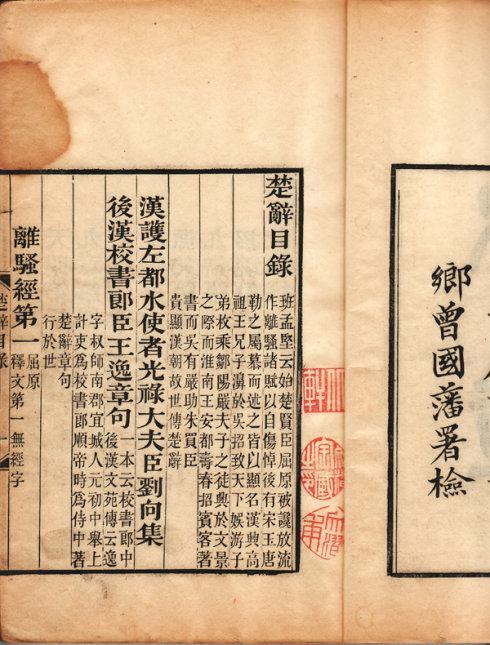 鄉曾國藩署檢
楚辭目錄
班孟堅云始楚賢臣屈原被讒放流
作離騷諸賦以自傷悼後有宋玉唐
勒之屬慕而述之皆以顯名漢興高
祖王兄子濞於吳招致天下娛游子
弟枚乘鄒陽嚴夫子之徒興於文景
之際而淮南王安都壽春招賓客著
書而吳有嚴助朱買臣
貴顯漢朝故世傳楚辭
漢護左都水使者光祿大夫臣劉向集
後漢校書郎臣王逸章句 一本云校書郎中
後漢文苑傳云逸
字叔師南郡宜城人元初中舉上
計吏為校書郎順帝時為侍中著
楚辭章句
行於世
離騷經第一 屈原
釋文第一無經字
楚辭目錄 一